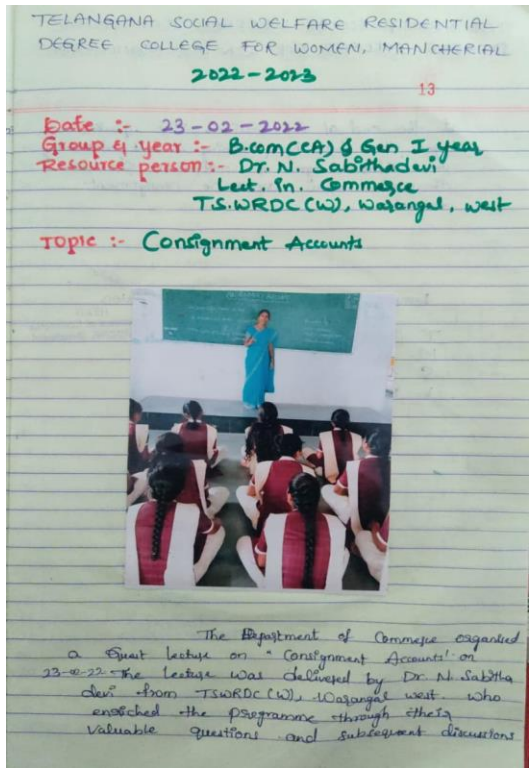 TELANGANA SOCIAL WELFARE RESIDENTIAL
DEGREE COLLEGE FOR WOMEN, MANCHERIAL
2022-2023
13
Date :- 23-02-2022
Group & year :- B.com(CA) & Gen I year
Resource person:- Dr. N. Sabithadevi
Lect. In. Commerce
TS.WRDC(W), Warangal, west
Topic :- Consignment Accounts
The Department of Commerce organised
a Guest lecture on "Consignment Accounts" on
23-02-22 The lecture was delivered by Dr. N. Sabitha
devi from TSWRDC(W), Warangal west. who
enriched the programme through their
valuable questions and subsequent discussions